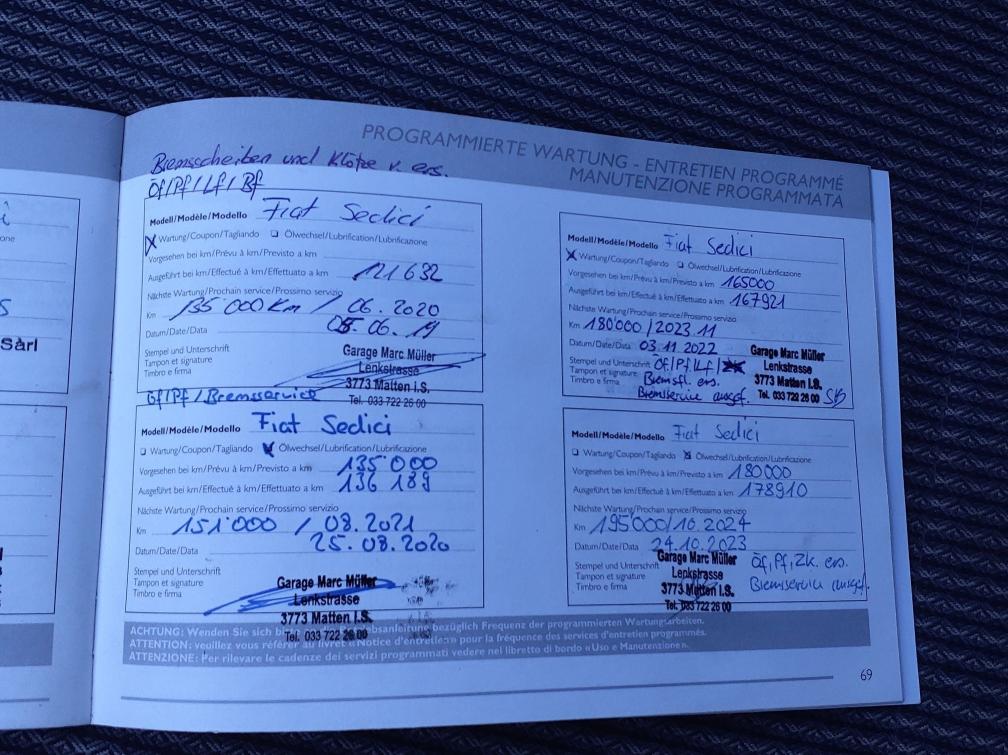 PROGRAMMIERTE WARTUNG - ENTRETIEN PROGRAMMÉ
MANUTENZIONE PROGRAMMATA
Bremsscheiben und Klötze v. ers.
Öf/Pf/Lf/Bf
Modell/Modèle/Modello Fiat Sedici
Wartung/Coupon/Tagliando Ölwechsel/Lubrification/Lubrificazione
Vorgesehen bei km/Prévu à km/Previsto a km
Ausgeführt bei km/Effectué à km/Effettuato a km 121632
Nächste Wartung/Prochain service/Prossimo servizio
Km 135 000 Km / 06. 2020
Datum/Date/Data 05. 06. 19
Stempel und Unterschrift
Tampon et signature
Timbro e firma
Garage Marc Müller
Lenkstrasse
3773 Matten I.S.
Tel. 033 722 26 00
Öf/Pf/Bremsservice
Modell/Modèle/Modello Fiat Sedici
Wartung/Coupon/Tagliando Ölwechsel/Lubrification/Lubrificazione
Vorgesehen bei km/Prévu à km/Previsto a km 135 000
Ausgeführt bei km/Effectué à km/Effettuato a km 136 189
Nächste Wartung/Prochain service/Prossimo servizio
Km 151'000 / 08. 2021
Datum/Date/Data 25. 08. 2020
Stempel und Unterschrift
Tampon et signature
Timbro e firma
Garage Marc Müller
Lenkstrasse
3773 Matten I.S.
Tel. 033 722 26 00
Modell/Modèle/Modello Fiat Sedici
Wartung/Coupon/Tagliando Ölwechsel/Lubrification/Lubrificazione
Vorgesehen bei km/Prévu à km/Previsto a km 165000
Ausgeführt bei km/Effectué à km/Effettuato a km 167921
Nächste Wartung/Prochain service/Prossimo servizio
Km 180'000 / 2023.11
Datum/Date/Data 03.11.2022
Stempel und Unterschrift Öf/Pf/Lf/
Tampon et signature
Timbro e firma Bremsfl. ers.
Bremsservice ausgef.
Garage Marc Müller
Lenkstrasse
3773 Matten I.S.
Tel. 033 722 26 00
Modell/Modèle/Modello Fiat Sedici
Wartung/Coupon/Tagliando Ölwechsel/Lubrification/Lubrificazione
Vorgesehen bei km/Prévu à km/Previsto a km 180000
Ausgeführt bei km/Effectué à km/Effettuato a km 178910
Nächste Wartung/Prochain service/Prossimo servizio
Km 195'000/10.2024
Datum/Date/Data 24.10.2023
Stempel und Unterschrift
Tampon et signature
Timbro e firma
Garage Marc Müller
Lenkstrasse
3773 Matten I.S.
Tel. 033 722 26 00
Öf, Pf, Zk. ers.
Bremservice ausgef.
ACHTUNG: Wenden Sie sich bezüglich Frequenz der programmierten Wartungsarbeiten.
ATTENTION: veuillez vous référer au livret «Notice d'entretien» pour la fréquence des services d'entretien programmés.
ATTENZIONE: Per rilevare le cadenze dei servizi programmati vedere nel libretto di bordo «Uso e Manutenzione».
69
Sàrl